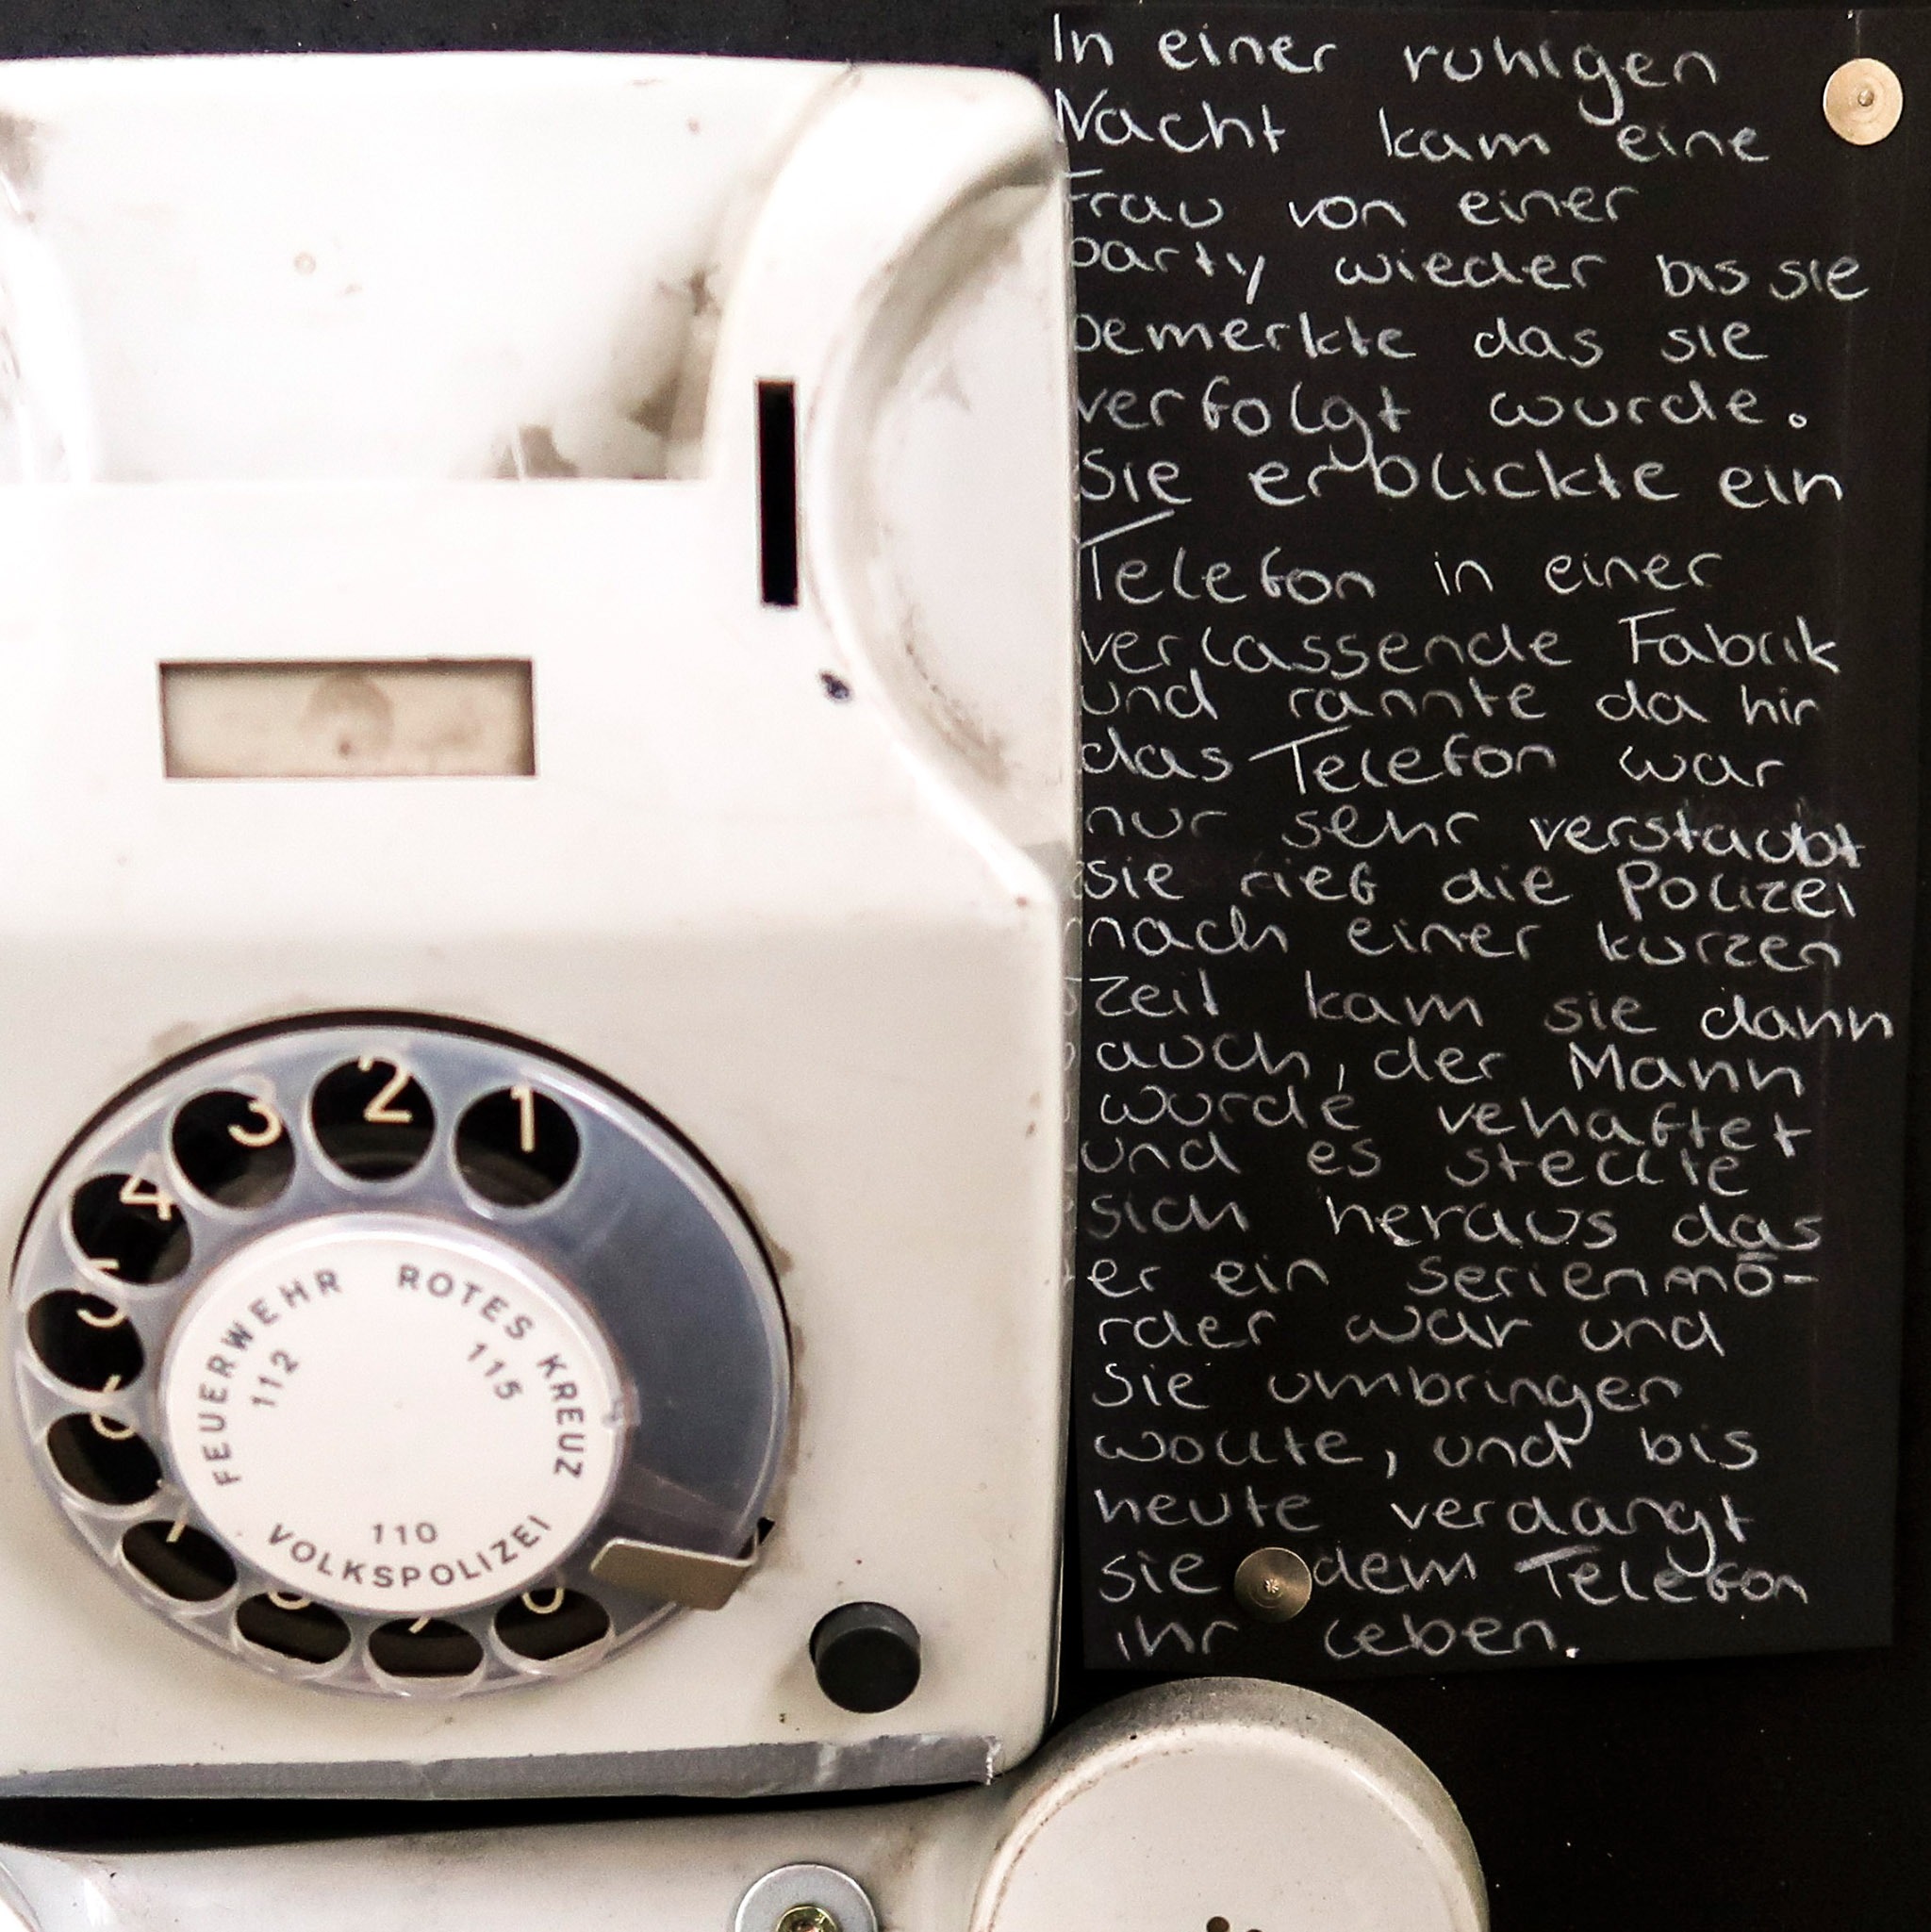 In einer ruhigen
Nacht kam eine
Frau von einer
party wieder bis sie
bemerkte das sie
verfolgt wurde.
Sie erblickte ein
Telefon in einer
verlassende Fabrik
und rannte da hin
das Telefon war
nur sehr verstaubt
sie rief die Polizei
nach einer kurzen
zeit kam sie dann
auch, der Mann
wurde vehaftet
und es stellte
sich heraus das
er ein serienmö-
rder war und
Sie umbringen
wollte, und bis
heute verdangt
sie dem Telefon
ihr leben.
1
2
3
4
5
6
7
8
9
0
FEUERWEHR
112
ROTES KREUZ
115
110
VOLKSPOLIZEI